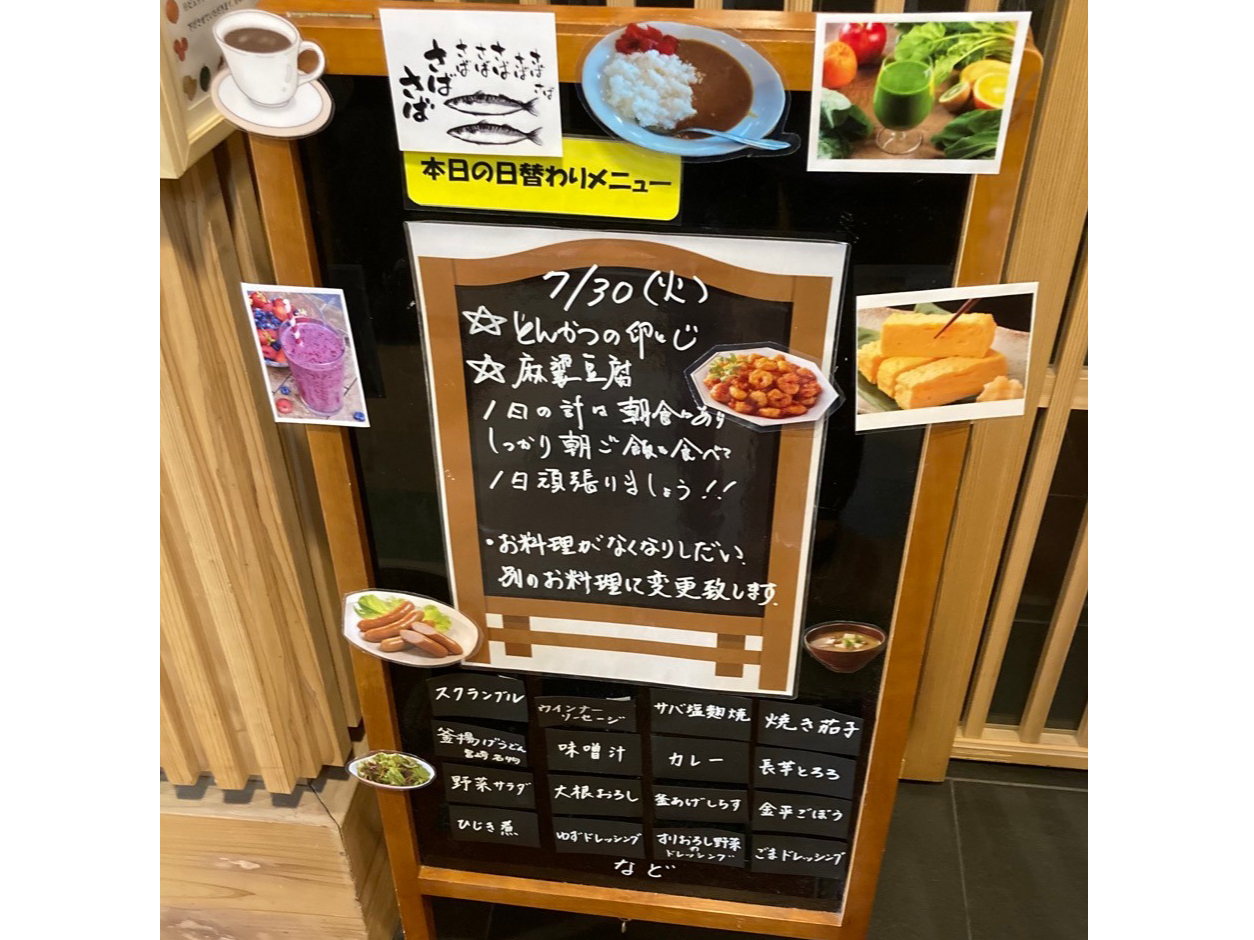 さば
さば
さば
さば
さば
さば
さば
さば
本日の日替わりメニュー
7/30(火)
☆とんかつの卵とじ
☆麻婆豆腐
1日の計は朝食にあり
しっかり朝ご飯を食べて
1日頑張りましょう!!
・お料理がなくなりしだい、
別のお料理に変更致します。
スクランブル
ウインナー
ソーセージ
サバ塩麹焼
焼き茄子
釜揚げうどん
宮崎名物
味噌汁
カレー
長芋とろろ
野菜サラダ
大根おろし
釜あげしらす
金平ごぼう
ひじき煮
ゆずドレッシング
すりおろし野菜
の
ドレッシング
ごまドレッシング
など